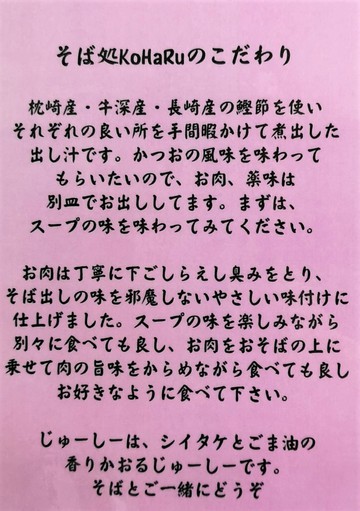 そば処KoHaRuのこだわり
枕崎産・牛深産・長崎産の鰹節を使い
それぞれの良い所を手間暇かけて煮出した
出し汁です。かつおの風味を味わって
もらいたいので、お肉、薬味は
別皿でお出ししてます。まずは、
スープの味を味わってみてください。
お肉は丁寧に下ごしらえし臭みをとり、
そば出しの味を邪魔しないやさしい味付けに
仕上げました。スープの味を楽しみながら
別々に食べても良し、お肉をおそばの上に
乗せて肉の旨味をからめながら食べても良し
お好きなように食べて下さい。
じゅーしーは、シイタケとごま油の
香りかおるじゅーしーです。
そばとご一緒にどうぞ